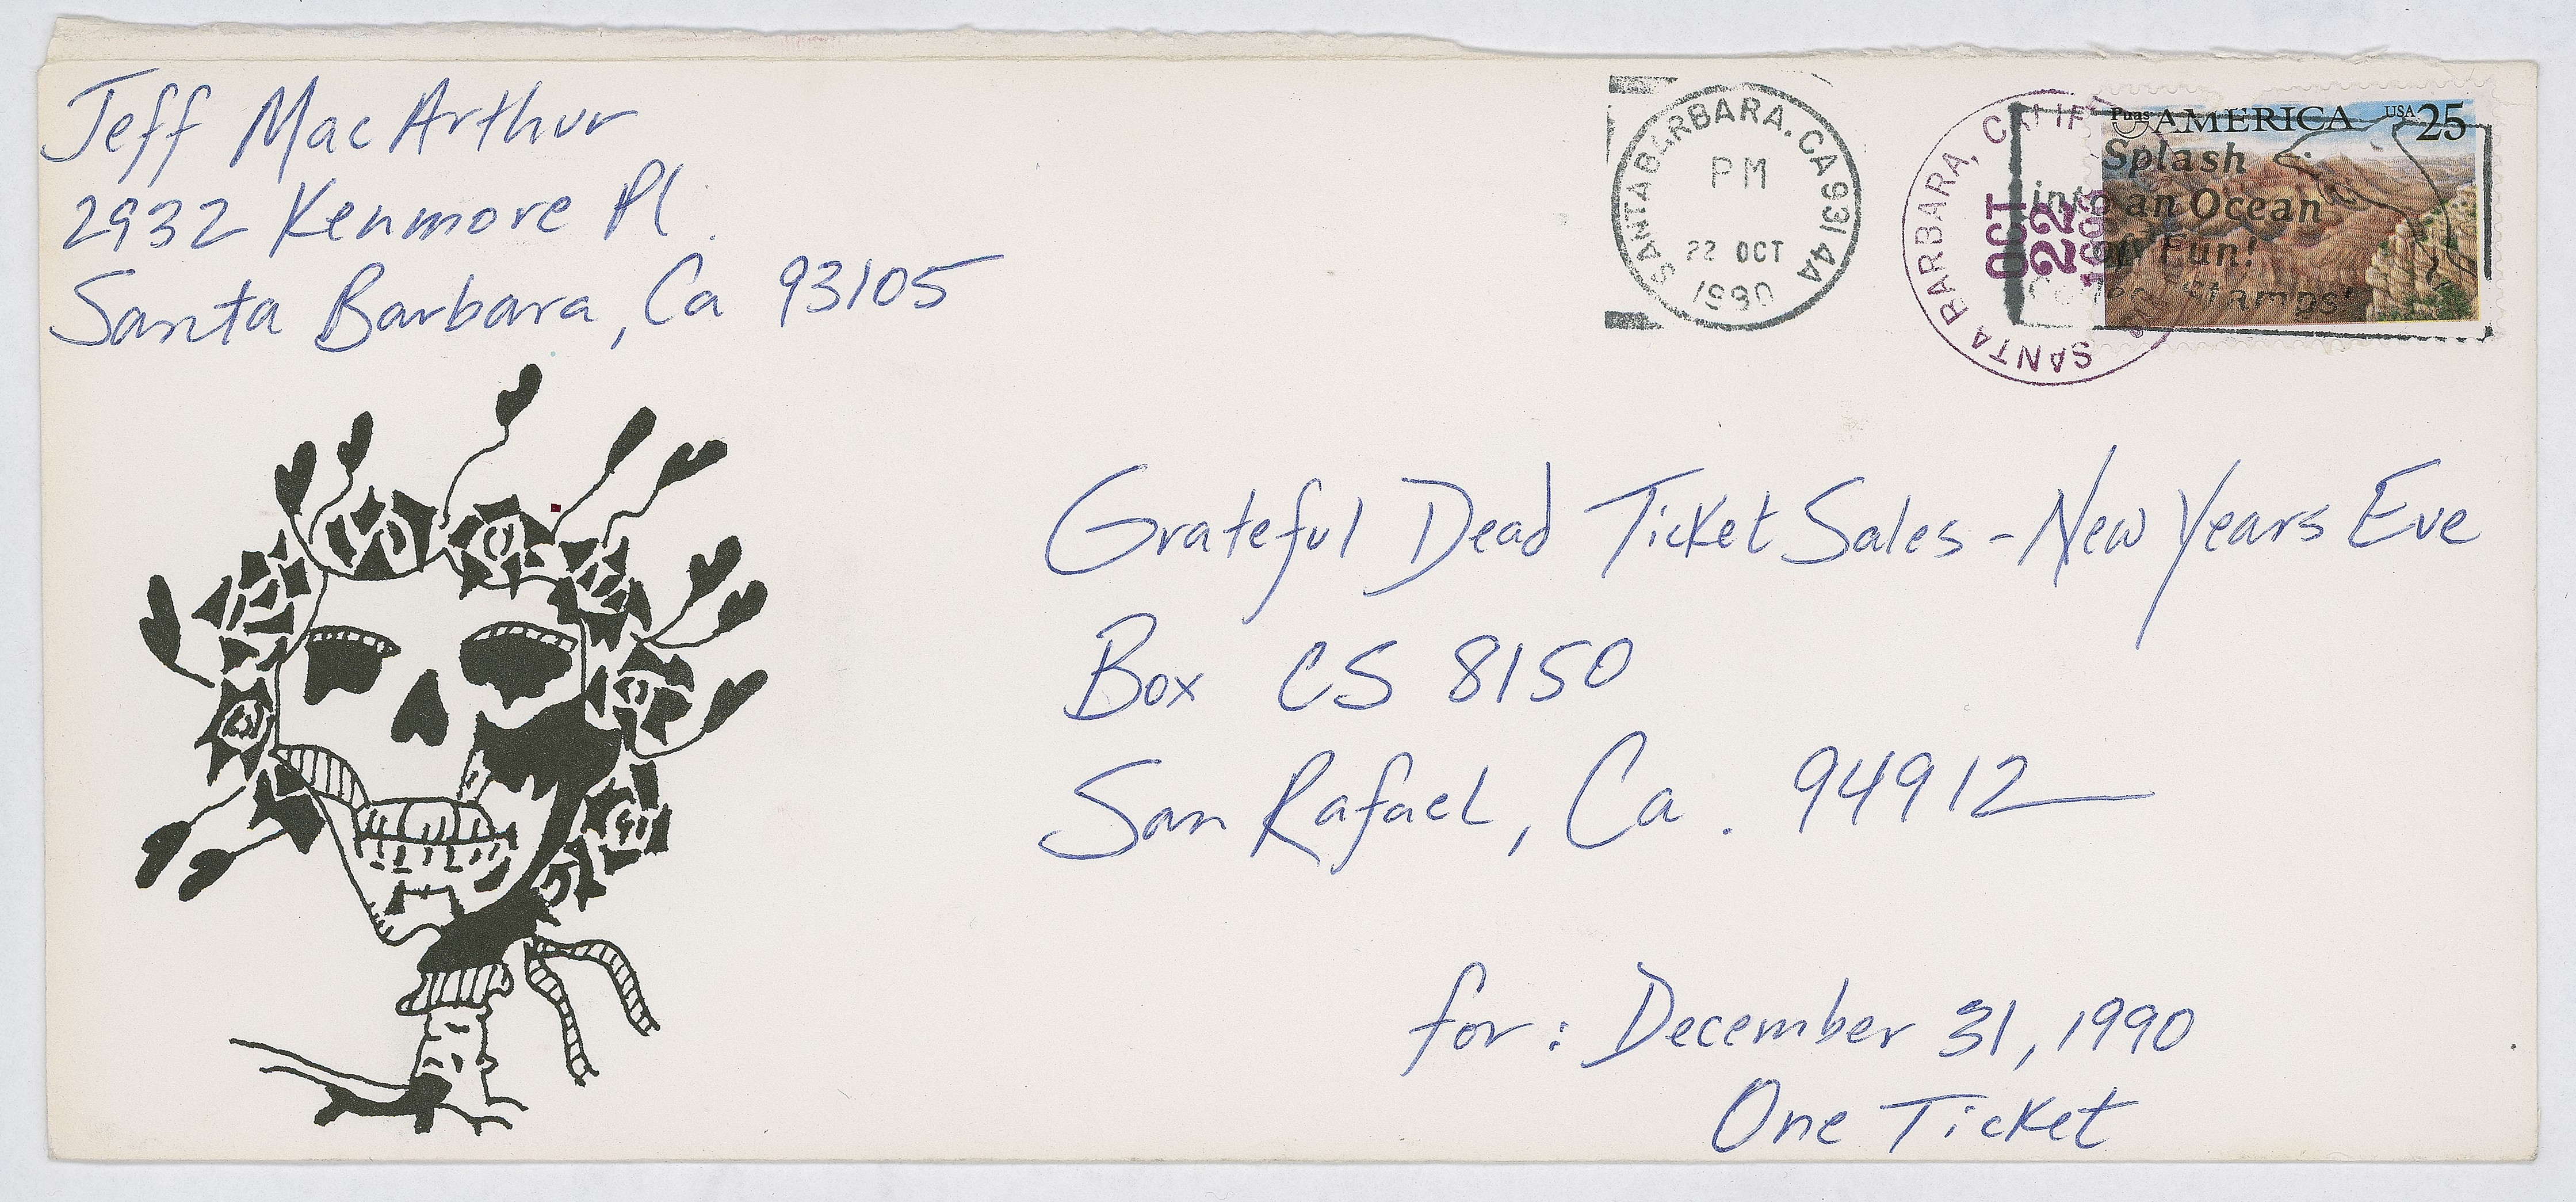 Jeff MacArthur
2932 Kenmore Pl.
Santa Barbara, Ca 93105
SANTA BARBARA, CA 9314A
PM
22 OCT
1990
SANTA BARBARA, CALIF
OCT
22
PUAS AMERICA USA 25
Splash
into an Ocean
of Fun!
Stamps!
Grateful Dead Ticket Sales - New Years Eve
Box CS 8150
San Rafael, Ca. 94912
for: December 31, 1990
One Ticket